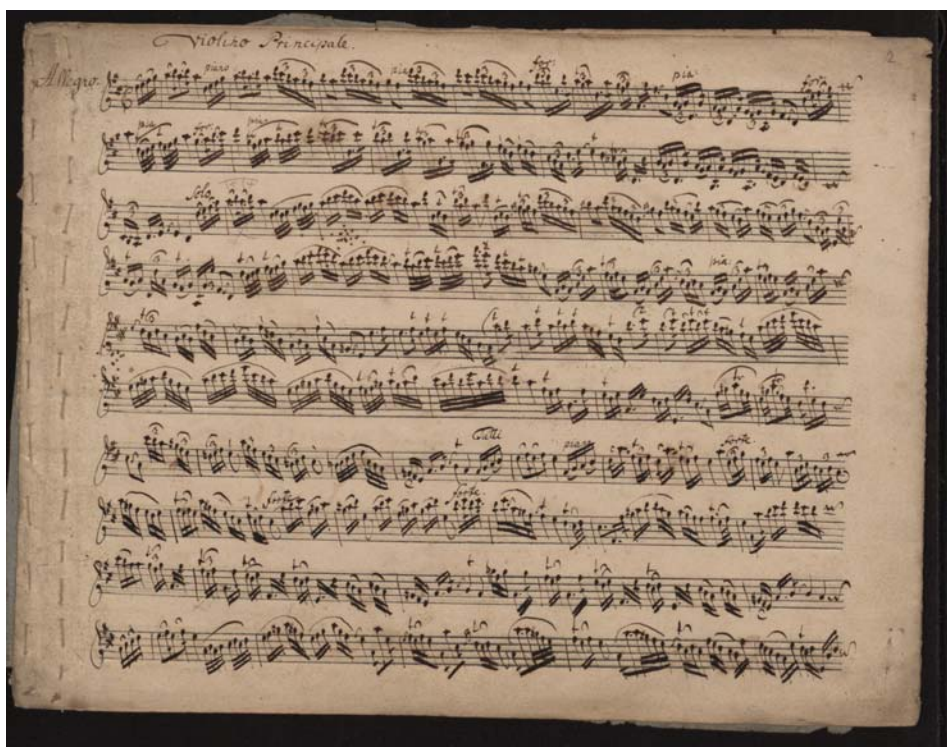 Violino Principale.
2
Allegro.
piano pia: for: pia: forte
pia for: pia:
Solo
pia:
Tutti piano forte
forte forte